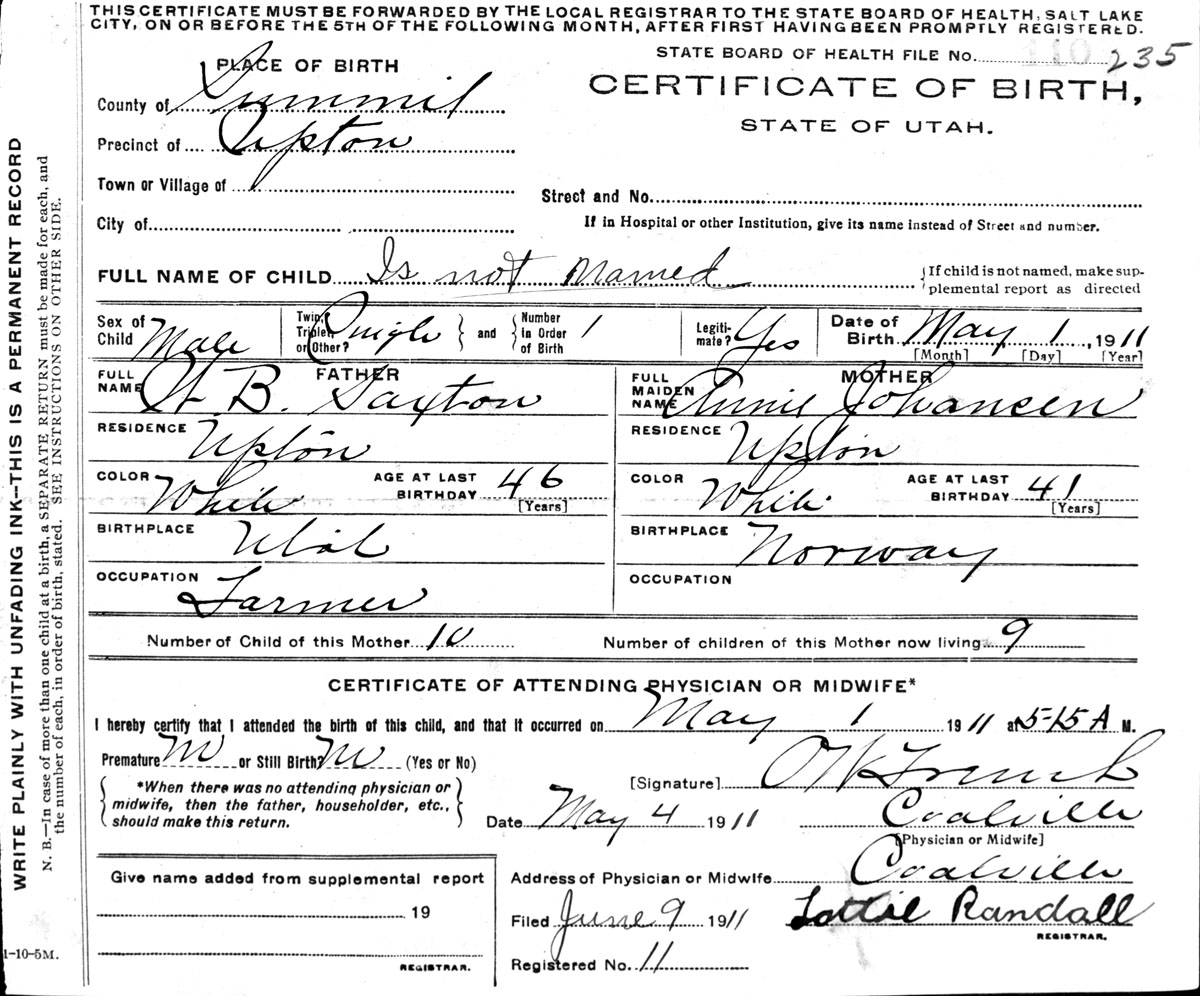 THIS CERTIFICATE MUST BE FORWARDED BY THE LOCAL REGISTRAR TO THE STATE BOARD OF HEALTH, SALT LAKE
CITY, ON OR BEFORE THE 5TH OF THE FOLLOWING MONTH, AFTER FIRST HAVING BEEN PROMPTLY REGISTERED.
STATE BOARD OF HEALTH FILE No. 235
PLACE OF BIRTH
CERTIFICATE OF BIRTH,
STATE OF UTAH.
County of Summit
Precinct of Upton
Town or Village of
Street and No.
City of
If in Hospital or other Institution, give its name instead of Street and number.
FULL NAME OF CHILD Is not Named
If child is not named, make sup-
plemental report as directed
Sex of Child Male
Twin, Triplet, or Other? Single and Number in Order of Birth 1
Legiti-mate? Yes
Date of Birth May 1, 1911
[Month] [Day] [Year]
FATHER
FULL NAME B. Saxton
MOTHER
FULL MAIDEN NAME Annie Johansen
RESIDENCE Upton
RESIDENCE Upton
COLOR White AGE AT LAST BIRTHDAY 46 [Years]
COLOR White AGE AT LAST BIRTHDAY 41 [Years]
BIRTHPLACE Utah
BIRTHPLACE Norway
OCCUPATION Farmer
OCCUPATION
Number of Child of this Mother 10 Number of children of this Mother now living 9
CERTIFICATE OF ATTENDING PHYSICIAN OR MIDWIFE*
I hereby certify that I attended the birth of this child, and that it occurred on May 1 1911 at 5-15 A M.
Premature or Still Birth? (Yes or No)
[Signature]
*When there was no attending physician or
midwife, then the father, householder, etc.,
should make this return.
Date May 4 1911 Coalville
[Physician or Midwife]
Give name added from supplemental report
19
REGISTRAR.
Address of Physician or Midwife Coalville
Filed June 9 1911 Lottie Randall
REGISTRAR.
Registered No. 11
WRITE PLAINLY WITH UNFADING INK—THIS IS A PERMANENT RECORD
N. B.—In case of more than one child at a birth, a SEPARATE RETURN must be made for each, and
the number of each, in order of birth, stated. SEE INSTRUCTIONS ON OTHER SIDE.
1-10-5M.